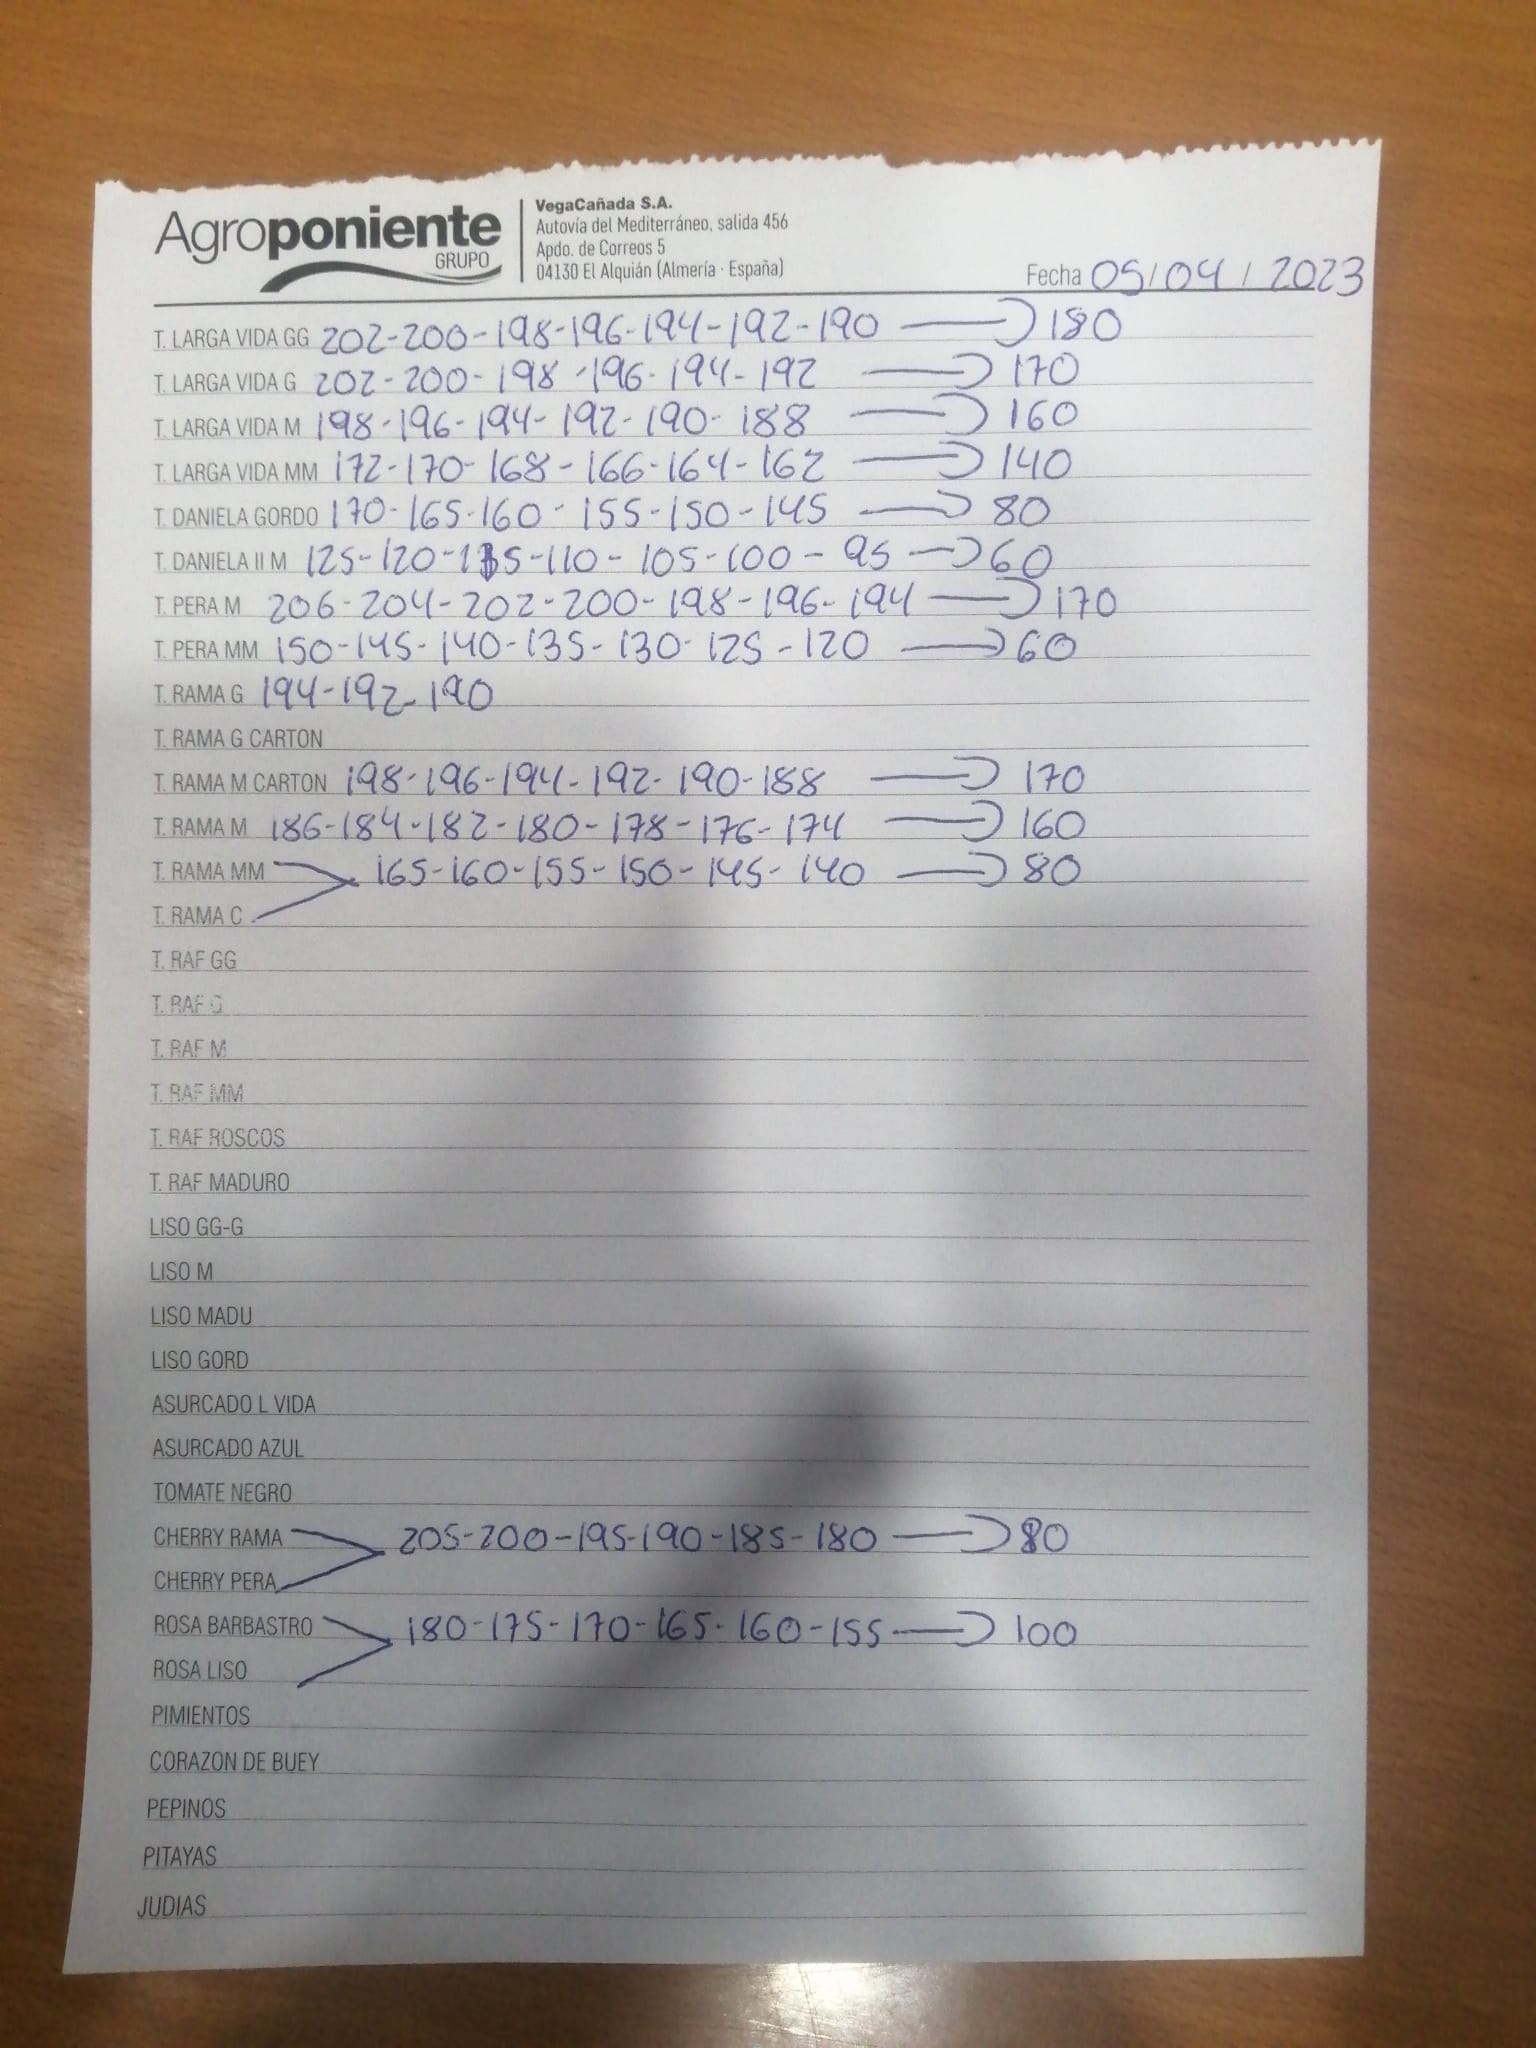 Agroponiente
GRUPO
VegaCañada S.A.
Autovía del Mediterráneo, salida 456
Apdo. de Correos 5
04130 El Alquián (Almería · España)
Fecha 05/04/2023
T. LARGA VIDA GG 202-200-198-196-194-192-190 180
T. LARGA VIDA G 202-200-198-196-194-192 170
T. LARGA VIDA M 198-196-194-192-190-188 160
T. LARGA VIDA MM 172-170-168-166-164-162 140
T. DANIELA GORDO 170-165-160-155-150-145 80
T. DANIELA II M 125-120-115-110-105-100-95 60
T. PERA M 206-204-202-200-198-196-194 170
T. PERA MM 150-145-140-135-130-125-120 60
T. RAMA G 194-192-190
T. RAMA G CARTON
T. RAMA M CARTON 198-196-194-192-190-188 170
T. RAMA M 186-184-182-180-178-176-174 160
T. RAMA MM 165-160-155-150-145-140 80
T. RAMA C
T. RAF GG
T. RAF G
T. RAF M
T. RAF MM
T. RAF ROSCOS
T. RAF MADURO
LISO GG-G
LISO M
LISO MADU
LISO GORD
ASURCADO L VIDA
ASURCADO AZUL
TOMATE NEGRO
CHERRY RAMA 205-200-195-190-185-180 80
CHERRY PERA
ROSA BARBASTRO 180-175-170-165-160-155 100
ROSA LISO
PIMIENTOS
CORAZON DE BUEY
PEPINOS
PITAYAS
JUDIAS